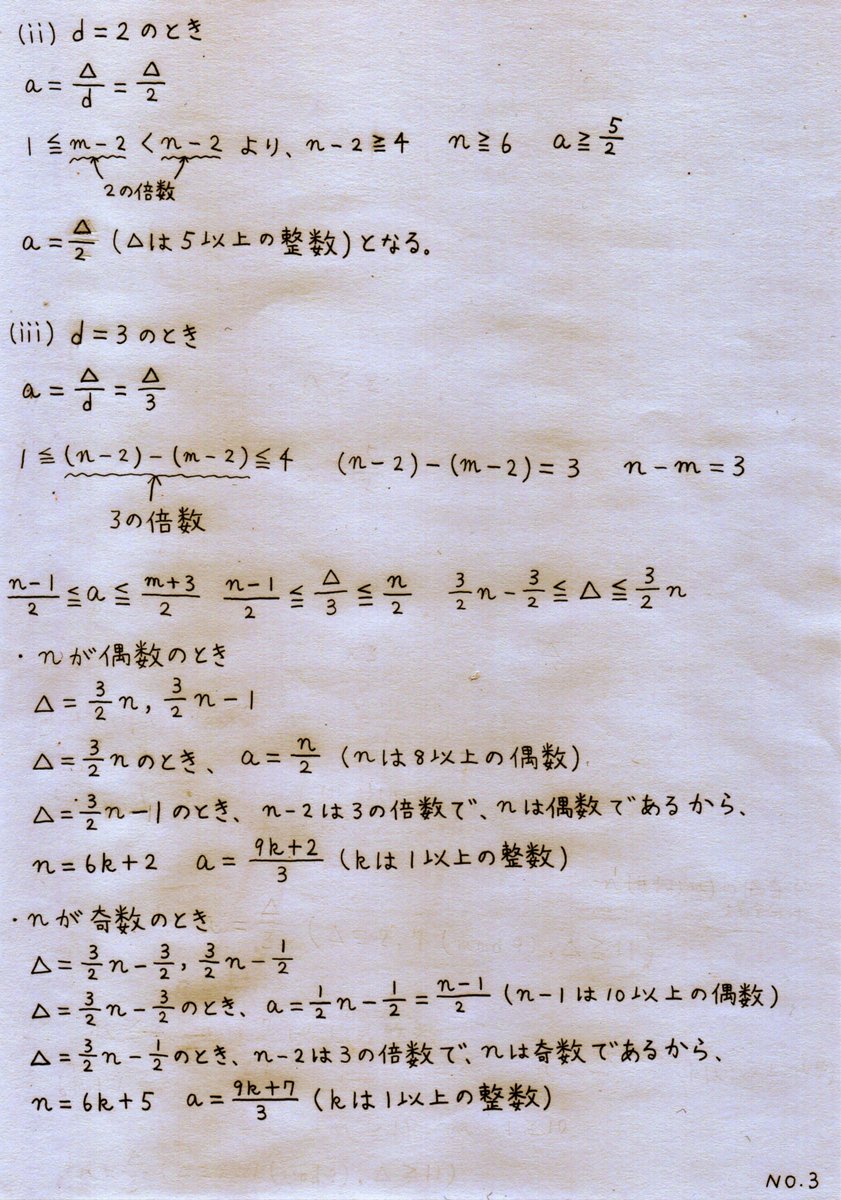 (ii) d=2のとき
a = Δ/d = Δ/2
1 ≦ m-2 < n-2 より、n-2 ≧ 4 n ≧ 6 a ≧ 5/2
2の倍数
a = Δ/2 (Δは5以上の整数)となる。
(iii) d=3のとき
a = Δ/d = Δ/3
1 ≦ (n-2)-(m-2) ≦ 4 (n-2)-(m-2) = 3 n-m = 3
3の倍数
n-1/2 ≦ a ≦ m+3/2 n-1/2 ≦ Δ/3 ≦ n/2 3/2 n - 3/2 ≦ Δ ≦ 3/2 n
・nが偶数のとき
Δ = 3/2 n, 3/2 n-1
Δ = 3/2 nのとき、a = n/2 (nは8以上の偶数)
Δ = 3/2 n-1のとき、n-2は3の倍数で、nは偶数であるから、
n = 6k+2 a = 9k+2/3 (kは1以上の整数)
・nが奇数のとき
Δ = 3/2 n - 3/2, 3/2 n - 1/2
Δ = 3/2 n - 3/2 のとき、a = 1/2 n - 1/2 = n-1/2 (n-1は10以上の偶数)
Δ = 3/2 n - 1/2 のとき、n-2は3の倍数で、nは奇数であるから、
n = 6k+5 a = 9k+7/3 (kは1以上の整数)
NO.3